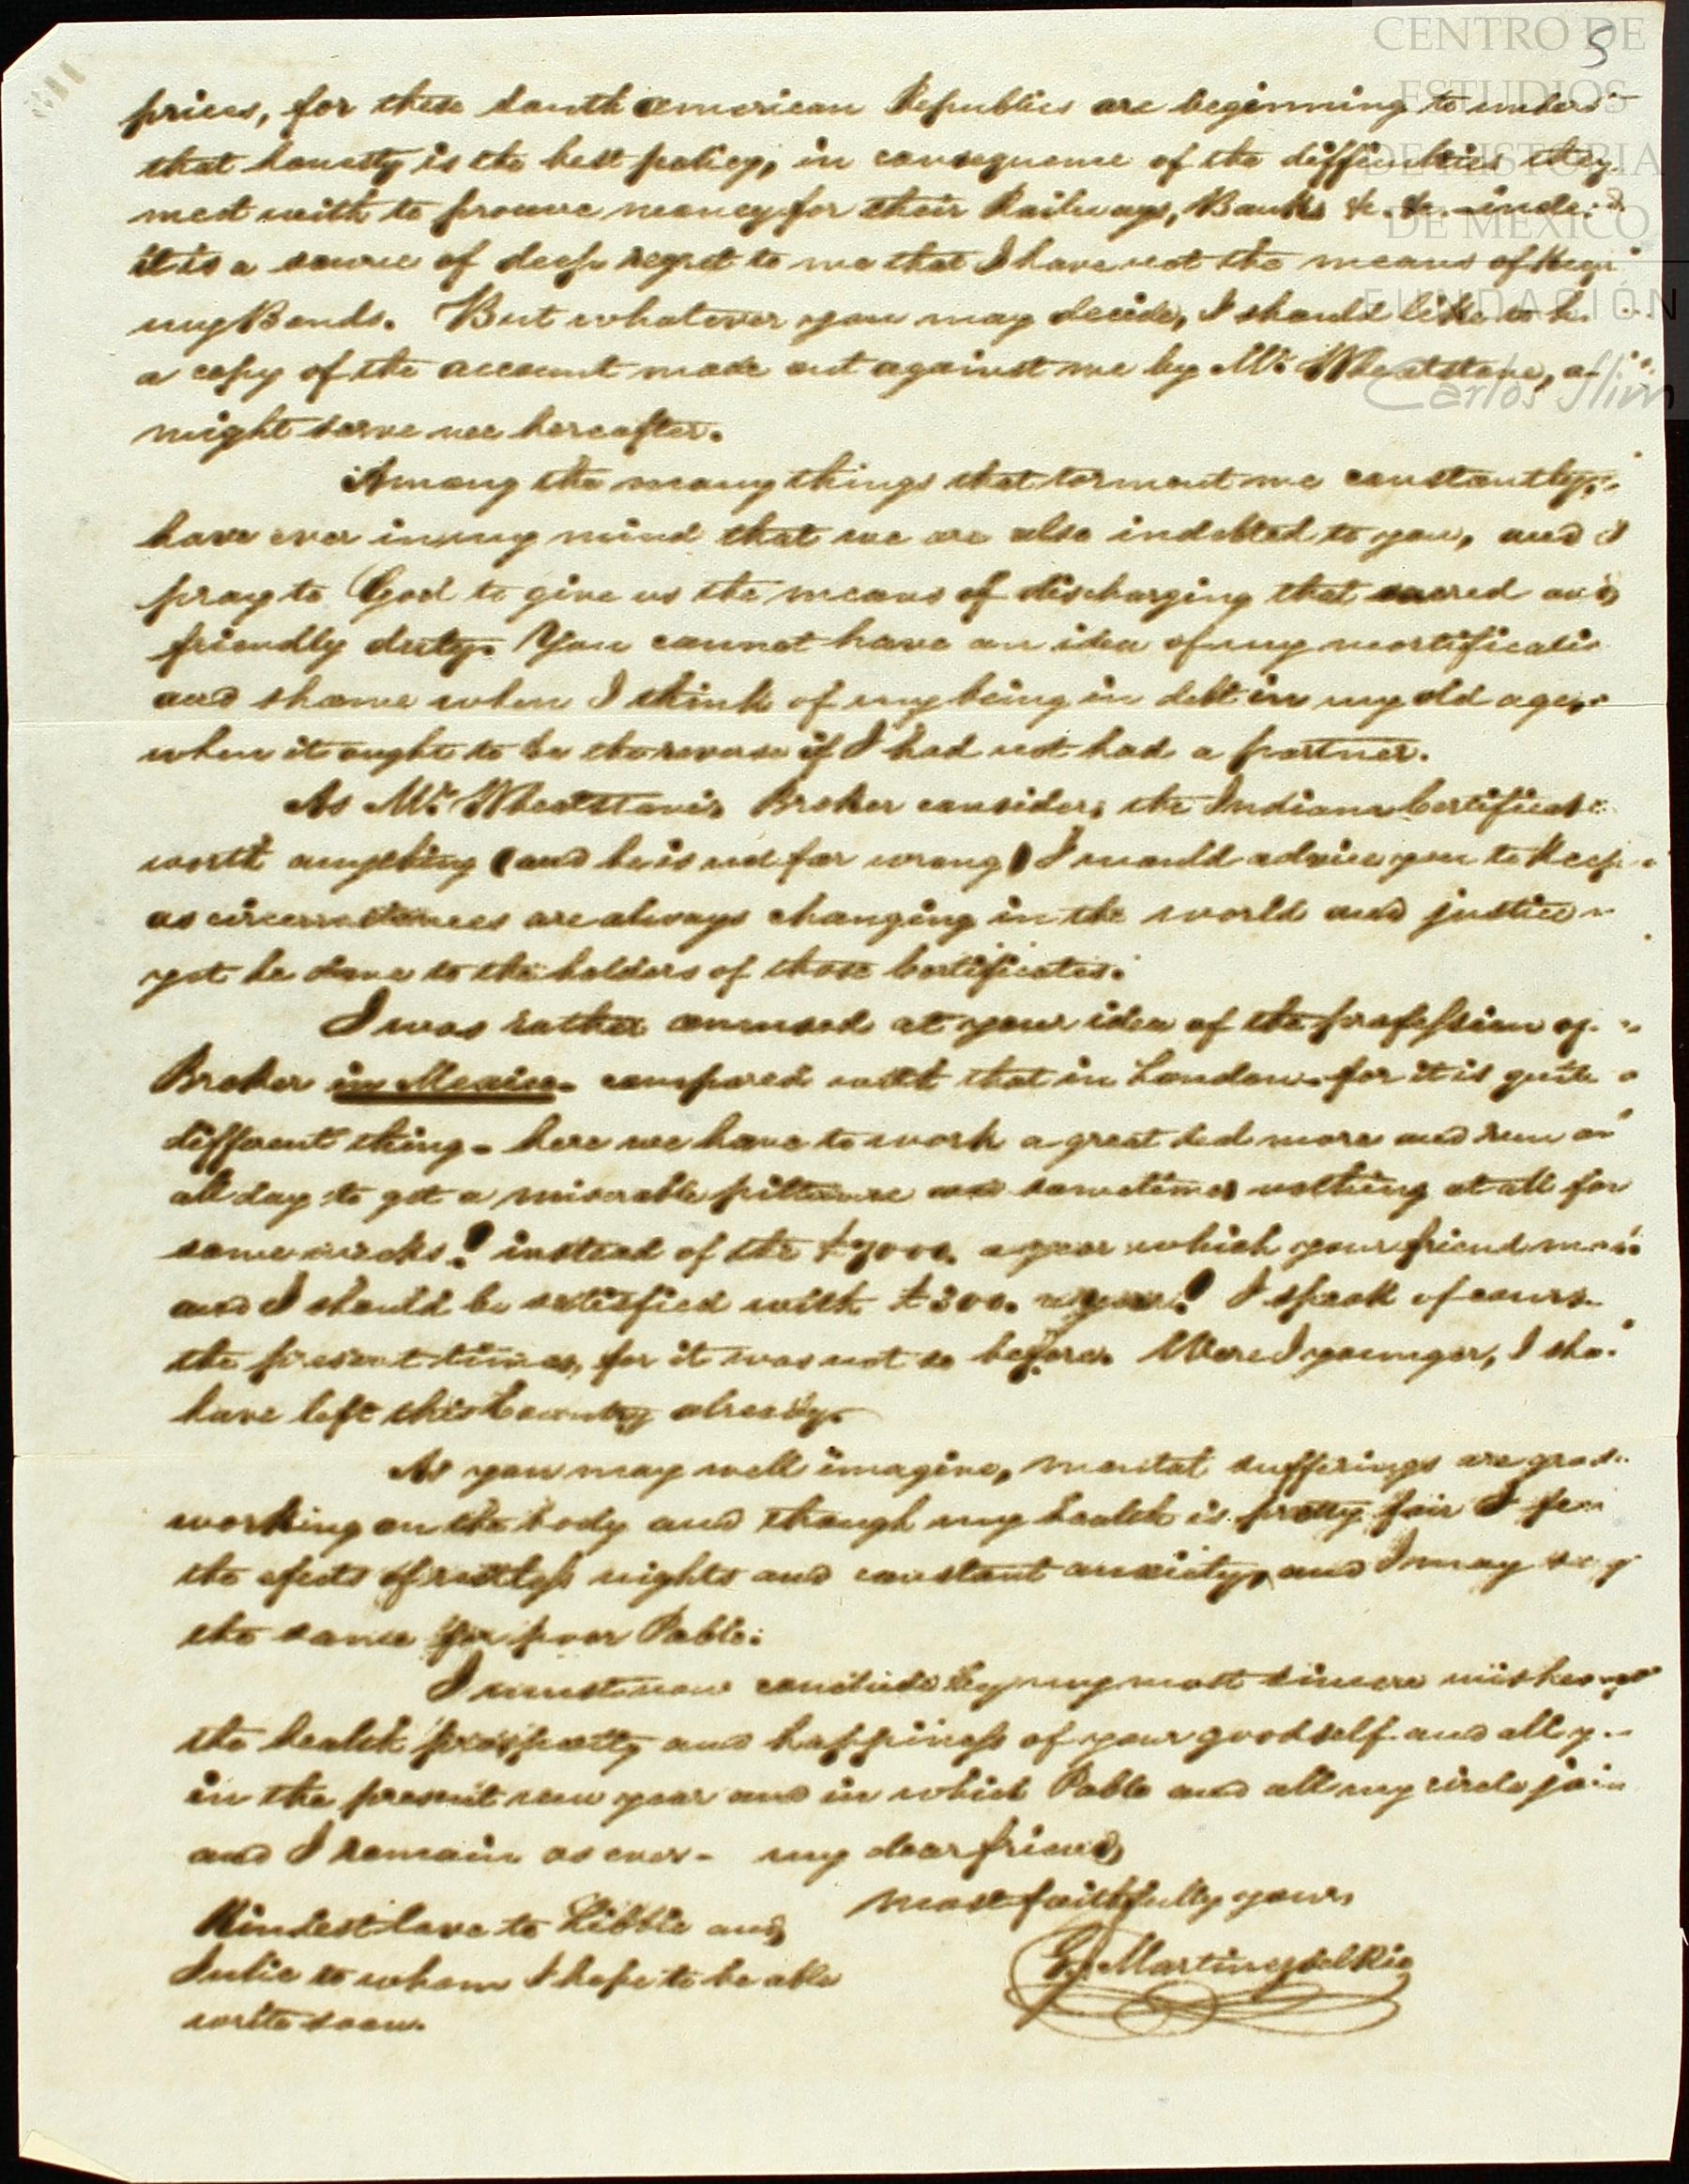 CENTRO DE
ESTUDIOS
DE HISTORIA
DE MÉXICO
FUNDACIÓN
Carlos Slim
5
prices, for these South American Republics are beginning to
that honesty is the best policy, in consequence of the difficulties they
meet with to procure money for their Railways, Banks &c. &c. - indeed
it is a source of deep regret to me that I have not the means of
my Bonds. But whatever you may decide, I should like to
a copy of the account made out against me by Mr. Wheatstone, a
might serve me hereafter.
Among the many things that torment me constantly,
have ever in my mind that we are also indebted to you, and I
pray to God to give us the means of discharging that sacred and
friendly duty. You cannot have an idea of my mortificatio
and shame when I think of my being in debt in my old age,
when it ought to be the reverse if I had not had a partner.
As Mr. Wheatstone's Broker considers the Indiana Certificate
worth anything (and he is not far wrong) I would advice you to Keep
as circumstances are always changing in the world and justice
yet be done to the holders of those Certificates.
I was rather amused at your idea of the profession of
Broker in Mexico compared with that in London - for it is quite a
different thing - here we have to work a great deal more and run
all day to get a miserable pittance and sometimes nothing at all for
some weeks! instead of the a year which your friend
and I should be satisfied with £300. a year! I speak of course
the present times, for it was not so before. Were I younger, I
have left this Country already.
As you may well imagine, mental sufferings are
working on the body and though my health is pretty fair I
the efects of restless nights and constant anxiety, and I may say
the same for poor Pablo.
I must now conclude by my most sincere wishes
the health prosperity and happiness of your goodself and all
in the present new year and in which Pablo and all my circle join
and I remain as ever - my dear friend,
most faithfully yours
G. Martinez del Rio
Kindest love to Libbie and
Julie to whom I hope to be able
write soon.